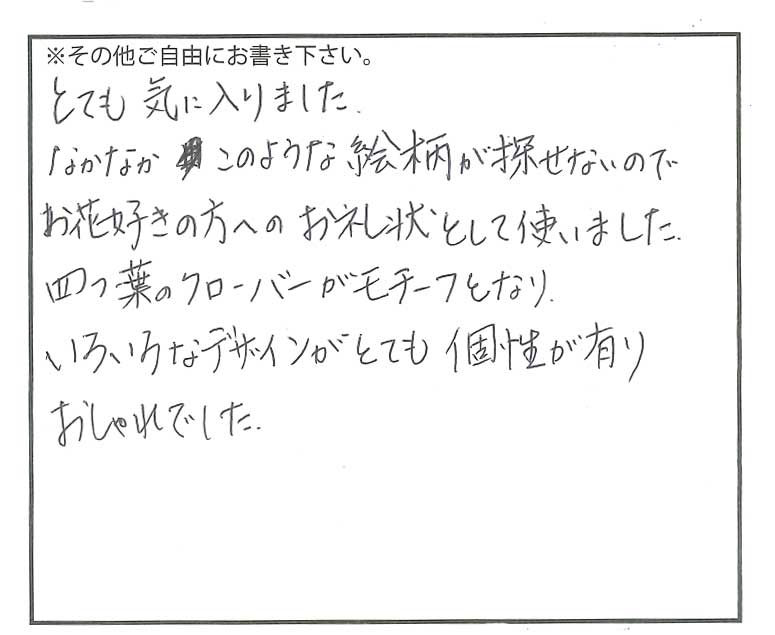 ※その他ご自由にお書き下さい。
とても 気に入りました.
なかなか このような絵柄が探せないので
お花好きの方への お礼状として使いました.
四つ葉のクローバーがモチーフとなり.
いろいろなデザインがとても 個性が有り
おしゃれでした.